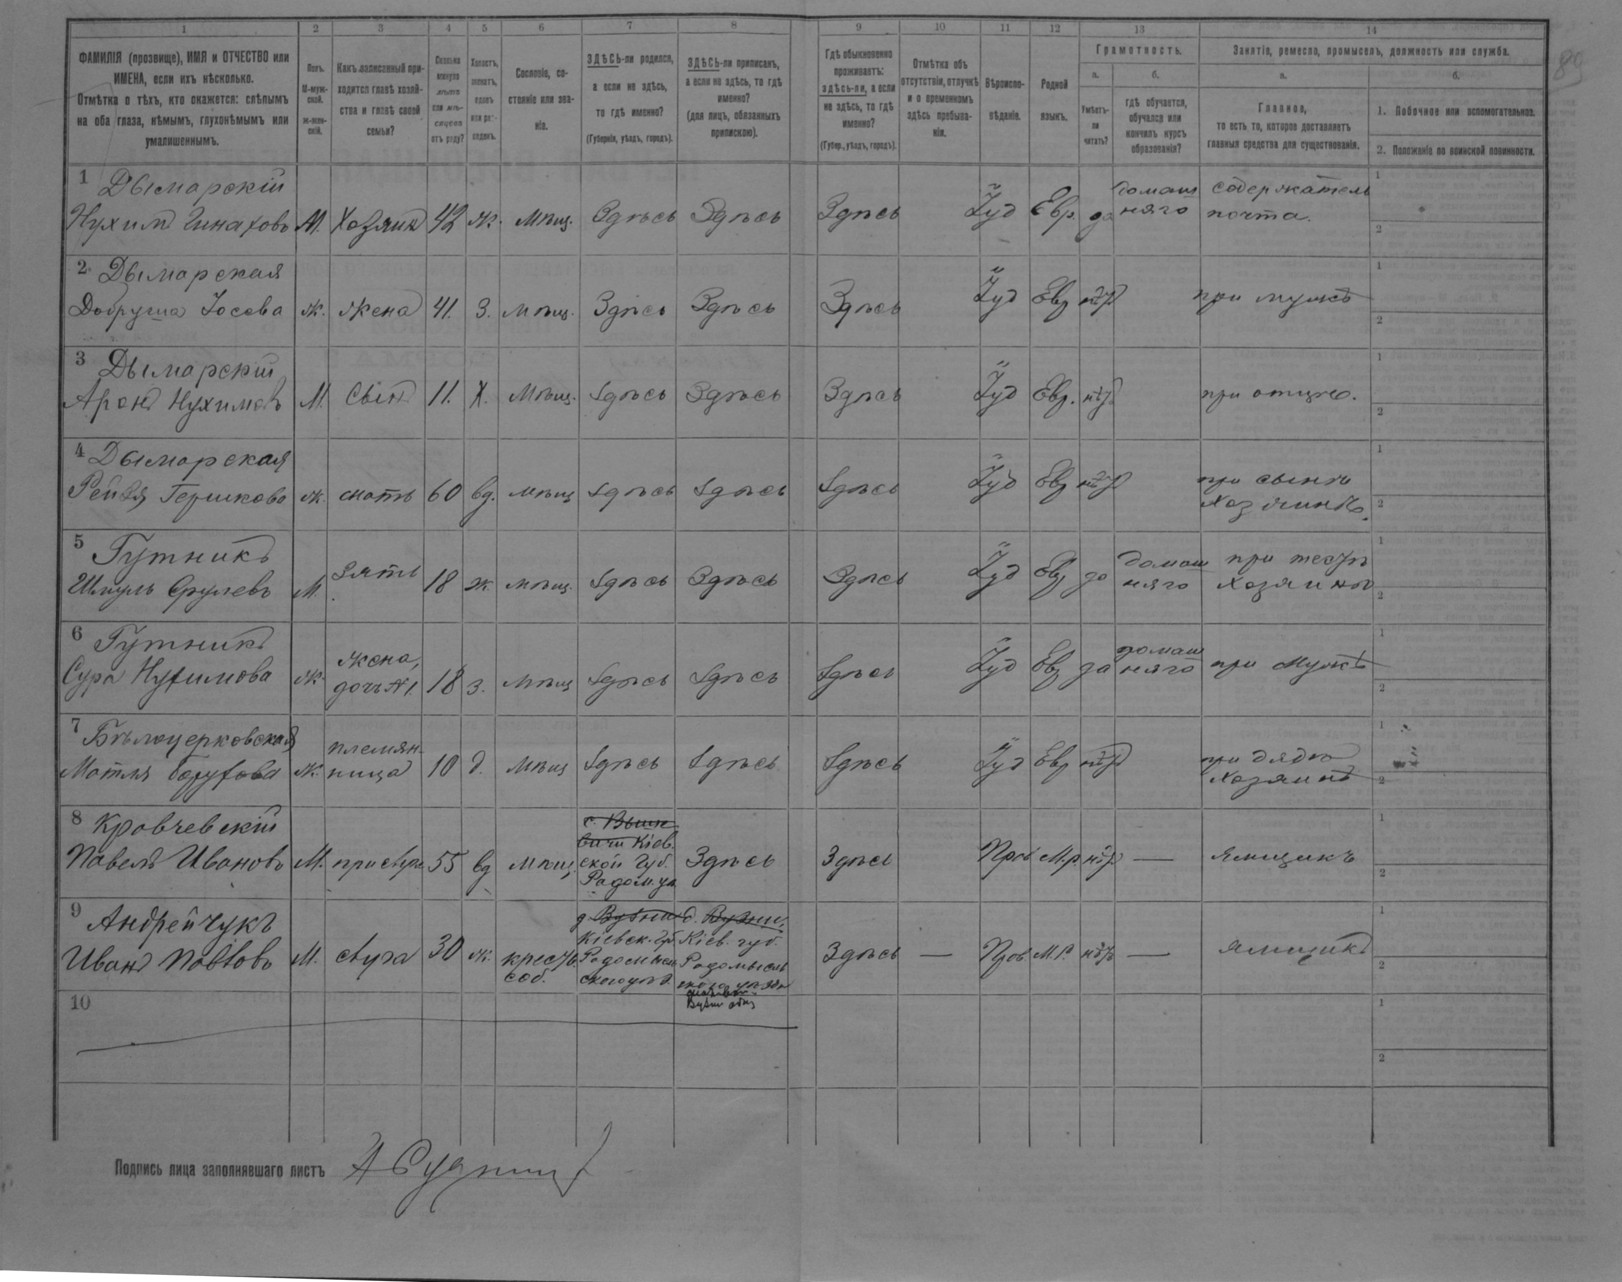 1 2 3 4 5 6 7 8 9 10 11 12 13 14
ФАМИЛІЯ (прозвище), ИМЯ и ОТЧЕСТВО или
ИМЕНА, если ихъ нѣсколько.
Отмѣтка о тѣхъ, кто окажется: слѣпымъ
на оба глаза, нѣмымъ, глухонѣмымъ или
умалишеннымъ.
Полъ.
М-муж-
ской.
Ж-жен-
скій.
Какъ записанный при-
ходится главѣ хозяй-
ства и главѣ своей
семьи?
Сколько
минуло
лѣтъ
или мѣ-
сяцевъ
отъ роду?
Холостъ,
женатъ,
вдовъ
или раз-
веденъ.
Сословіе, со-
стояніе или зва-
ніе.
ЗДѢСЬ-ли родился,
а если не здѣсь,
то гдѣ именно?
(Губернія, уѣздъ, городъ).
ЗДѢСЬ-ли приписанъ,
а если не здѣсь, то гдѣ
именно?
(для лицъ, обязанныхъ
припискою).
Гдѣ обыкновенно
проживаетъ:
здѣсь-ли, а если
не здѣсь, то гдѣ
именно?
(Губер., уѣздъ, городъ).
Отмѣтка объ
отсутствіи, отлучкѣ
и о временномъ
здѣсь пребыва-
ніи.
Вѣроиспо-
вѣданіе.
Родной
языкъ.
Грамотность.
а. б.
Умѣетъ-
ли
читать?
гдѣ обучается,
обучался или
кончилъ курсъ
образованія?
Занятіе, ремесло, промыселъ, должность или служба.
а. б.
Главное,
то есть то, которое доставляетъ
главныя средства для существованія.
1. Побочное или вспомогательное.
2. Положеніе по воинской повинности.
89
1 Дымарскій домаш содержатель 1
Нухимъ М. Хозяинъ 42 ж. мѣщ. Здѣсь Здѣсь Здѣсь Іуд Евр. да няго почта. 2
2 Дымарская 1
Добруша Іосева ж. жена 41. З. мѣщ. Здѣсь Здѣсь Здѣсь Іуд Евр нѣтъ при мужѣ 2
3 Дымарскій 1
Аронъ Нухимовъ М. Сынъ 11. Х. Мѣщ. Здѣсь Здѣсь Здѣсь Іуд Евр. нѣтъ при отцѣ. 2
4 Дымарская при сынѣ 1
Рейзя Гершкова ж. мать 60 вд. мѣщ Здѣсь Здѣсь Здѣсь Іуд Евр нѣтъ Хозяинѣ. 2
5 Гутникъ домаш при тестѣ 1
Шмуль Срулевъ М. Зять 18 ж. мѣщ. Здѣсь Здѣсь Здѣсь Іуд Евр да няго Хозяинѣ 2
6 Гутникъ жена, домаш 1
Сура Нухимова ж. дочь №1 18 з. мѣщ Здѣсь Здѣсь Здѣсь Іуд Евр да няго при Мужѣ 2
7 Бѣлоцерковская племян- при дядѣ 1
Мотля Борухова ж. ница 10 д. мѣщ Здѣсь Здѣсь Здѣсь Іуд Евр нѣтъ Хозяинѣ 2
8 Кровчевскій 1
Павелъ Ивановъ М. прислуга 55 вд мѣщ. Здѣсь Здѣсь Прав М.р нѣтъ — ямщикъ 2
Кіев-
ской Губ.
Радом. у.
9 Андрейчукъ 1
Иванъ Павловъ М. слуга 30 ж. крест. Здѣсь — Прав. М.Р. нѣтъ — ямщикъ 2
соб.
Кіевск. Губ Кіев. губ.
Радомысль Радомысль
скаго уѣзд. скаго уѣзда
10 1
2
Подпись лица заполнявшаго листъ